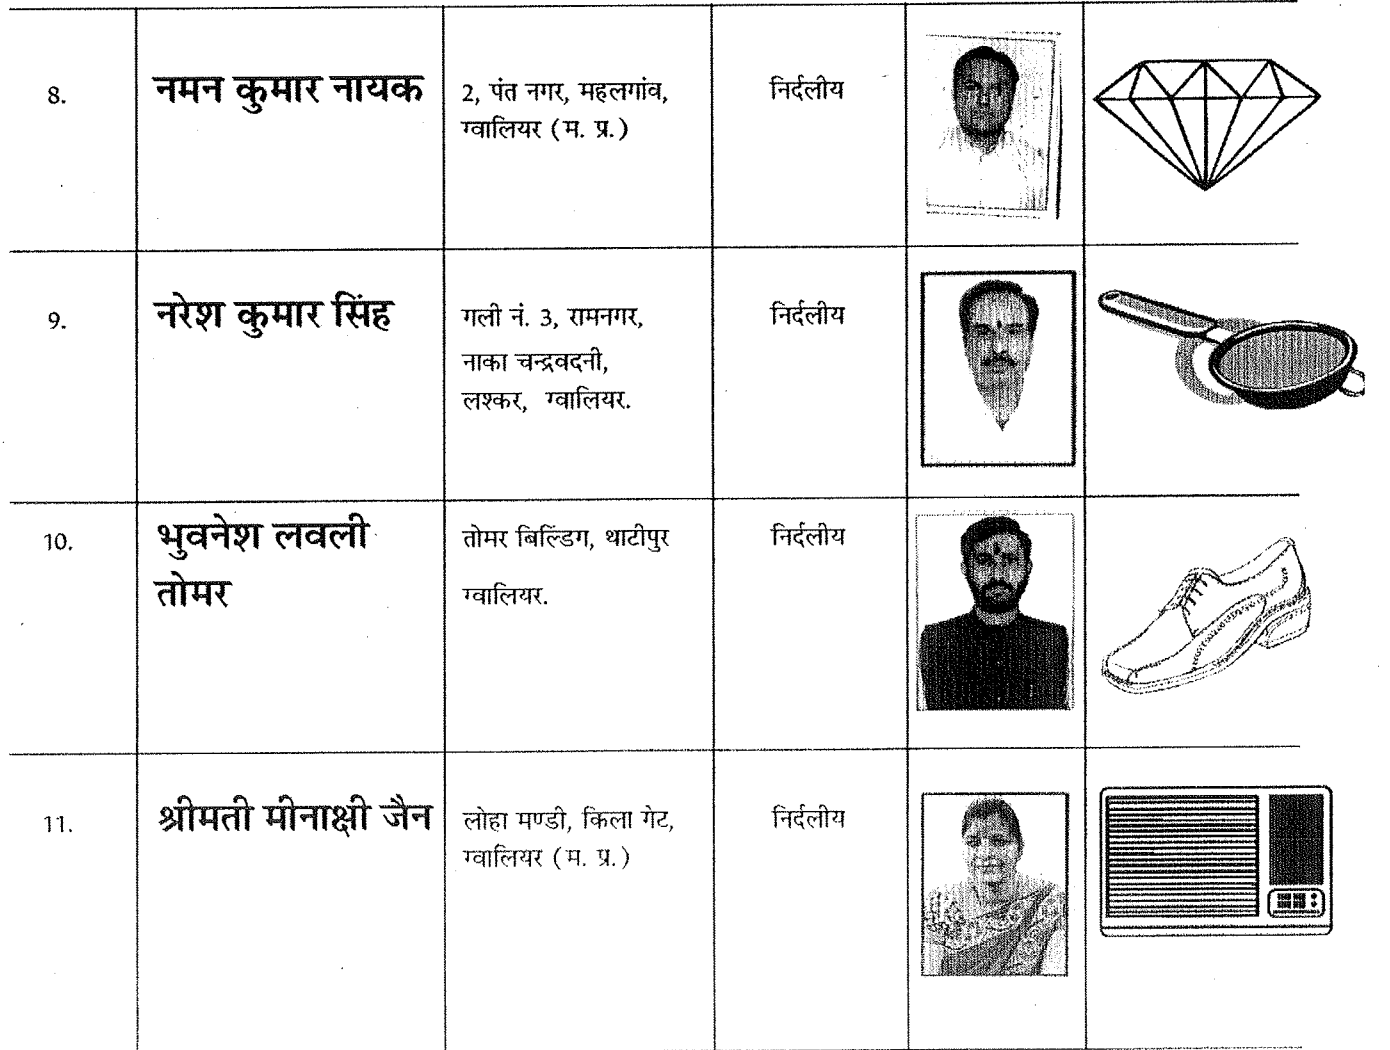 8.
नमन कुमार नायक
2, पंत नगर, महलगांव,
ग्वालियर (म. प्र.)
निर्दलीय
9.
नरेश कुमार सिंह
गली नं. 3, रामनगर,
नाका चन्द्रवदनी,
लश्कर, ग्वालियर.
निर्दलीय
10.
भुवनेश लवली
तोमर
तोमर बिल्डिंग, थाटीपुर
ग्वालियर.
निर्दलीय
11.
श्रीमती मीनाक्षी जैन
लोहा मण्डी, किला गेट,
ग्वालियर (म. प्र.)
निर्दलीय